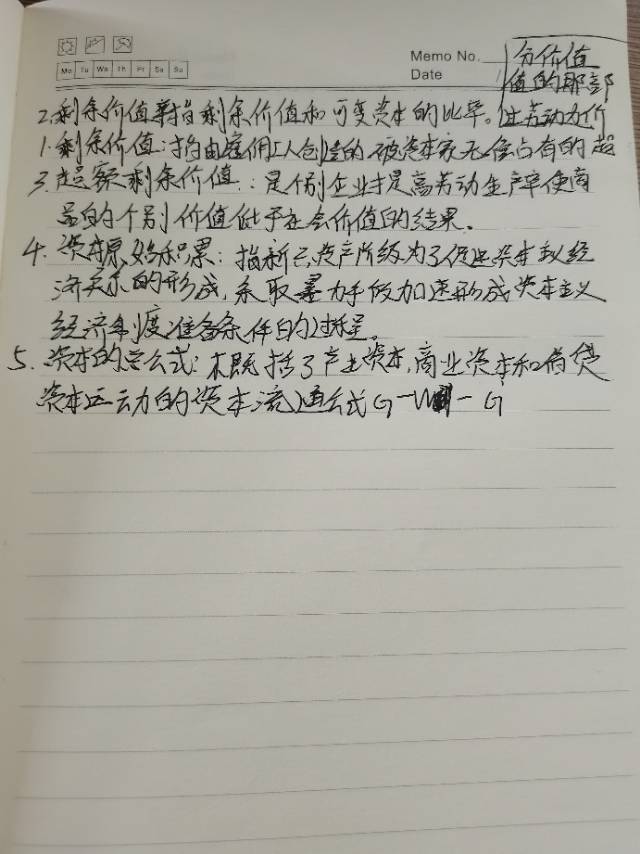 Memo No.
Date
Mo Tu We Th Fr Sa Su
分价值
值的那部
过劳动力价
2.剩余价值率:指剩余价值和可变资本的比率。
1.剩余价值:指由雇佣工人创造的被资本家无偿占有的超
3.超额剩余价值:是个别企业提高劳动生产率使商
品的个别价值低于社会价值的结果。
4.资本原始积累:指新兴资产阶级为了促进资本主义经
济关系的形成,采取暴力手段加速形成资本主义
经济制度准备条件的过程。
5.资本的总公式:概括了产业资本,商业资本和借贷
资本运动的资本流通公式G-W-G